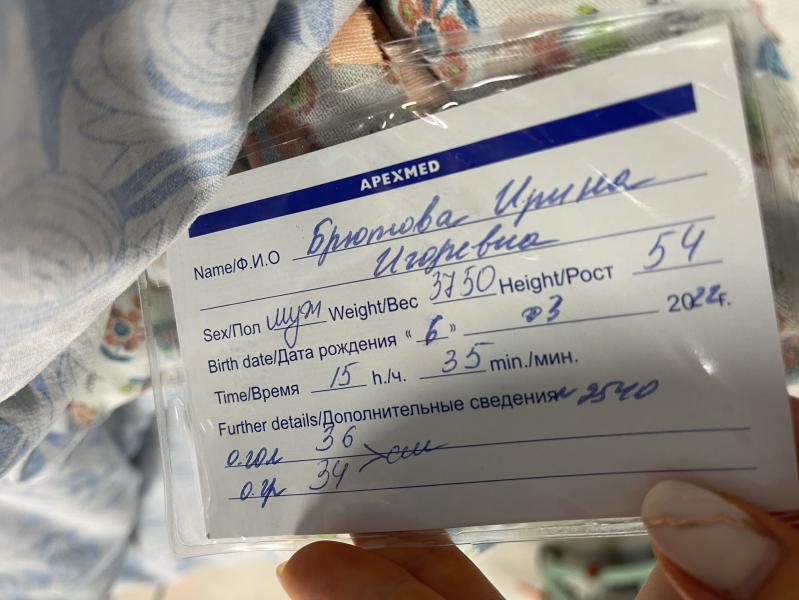 APEXMED
Name/Ф.И.О Брютова Ирина
Игоревна
Sex/Пол муж Weight/Вес 3750 Height/Рост 54
Birth date/Дата рождения “ 6 ” 03 2022г.
Time/Время 15 h./ч. 35 min./мин.
Further details/Дополнительные сведения № 2540
о.гол 36
о.гр 34 > см